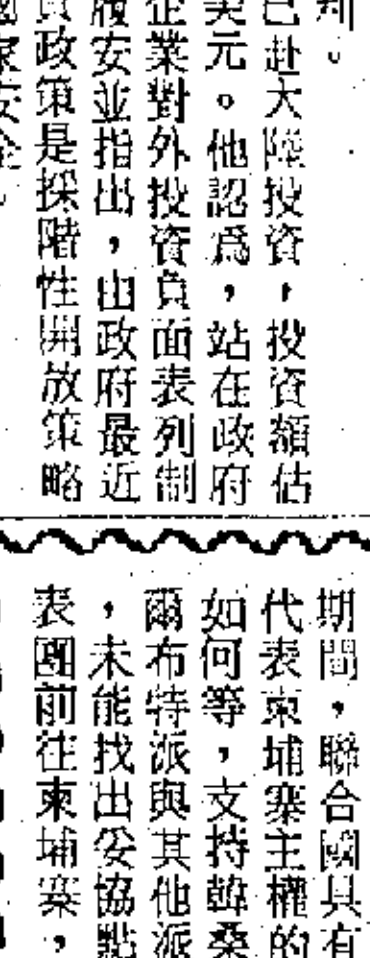 判。
已赴大陸投資，投資額估
美元。他認爲，站在政府
企業對外投資負面表列制
履安並指出，由政府最近
政策是採階性開放策略
國家安全。
期間，聯合國具有
代表柬埔寨主權的
如何等，支持韓桑
爾布特派與其他派
，未能找出妥協點
表團前往柬埔寨，